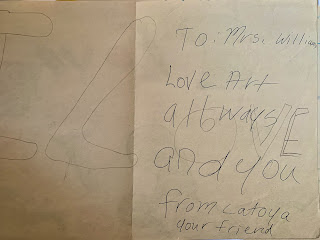 To: Mrs. William
Love Art
always
and you
from Latoya
your friend